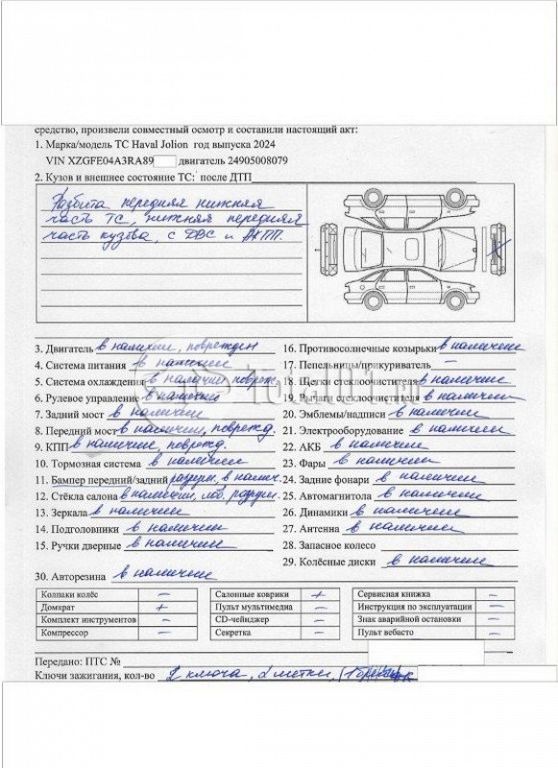 средство, произвели совместный осмотр и составили настоящий акт:
1. Марка/модель ТС Haval Jolion год выпуска 2024
VIN XZGFE04A3RA89 двигатель 24905008079
2. Кузов и внешнее состояние ТС: после ДТП
Разбита передняя нижняя
часть ТС, нижняя передняя
часть кузова, с ДВС и АКПП.
3. Двигатель в наличии, поврежден
4. Система питания в наличии
5. Система охлаждения в наличии поврежд
6. Рулевое управление в наличии
7. Задний мост в наличии
8. Передний мост в наличии, поврежд.
9. КПП в наличии, поврежд.
10. Тормозная система в наличии
11. Бампер передний/задний разруш, в налич.
12. Стёкла салона в наличии, лоб. разруш.
13. Зеркала в наличии
14. Подголовники в наличии
15. Ручки дверные в наличии
16. Противосолнечные козырьки в наличии
17. Пепельницы/прикуриватель —
18. Щетки стеклоочистителя в наличии
19. в наличии
20. Эмблемы/надписи в наличии
21. Электрооборудование в наличии
22. АКБ в наличии
23. Фары в наличии
24. Задние фонари в наличии
25. Автомагнитола в наличии
26. Динамики в наличии
27. Антенна в наличии
28. Запасное колесо
29. Колёсные диски в наличии
30. Авторезина в наличии
Колпаки колёс — Салонные коврики + Сервисная книжка —
Домкрат + Пульт мультимедиа — Инструкция по эксплуатации —
Комплект инструментов — CD-чейнджер — Знак аварийной остановки —
Компрессор — Секретка — Пульт вебасто —
Передано: ПТС №
Ключи зажигания, кол-во 2 ключа, 2 метки,